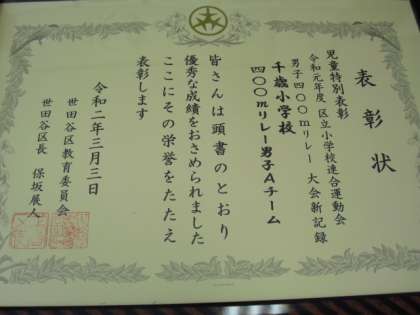 表彰状
児童特別表彰
令和元年度 区立小学校連合運動会
男子四〇〇mリレー 大会新記録
千歳小学校
四〇〇mリレー男子Aチーム
皆さんは頭書のとおり
優秀な成績をおさめられました
ここにその栄誉をたたえ
表彰します
令和二年三月三日
世田谷区教育委員会
世田谷区長 保坂展人